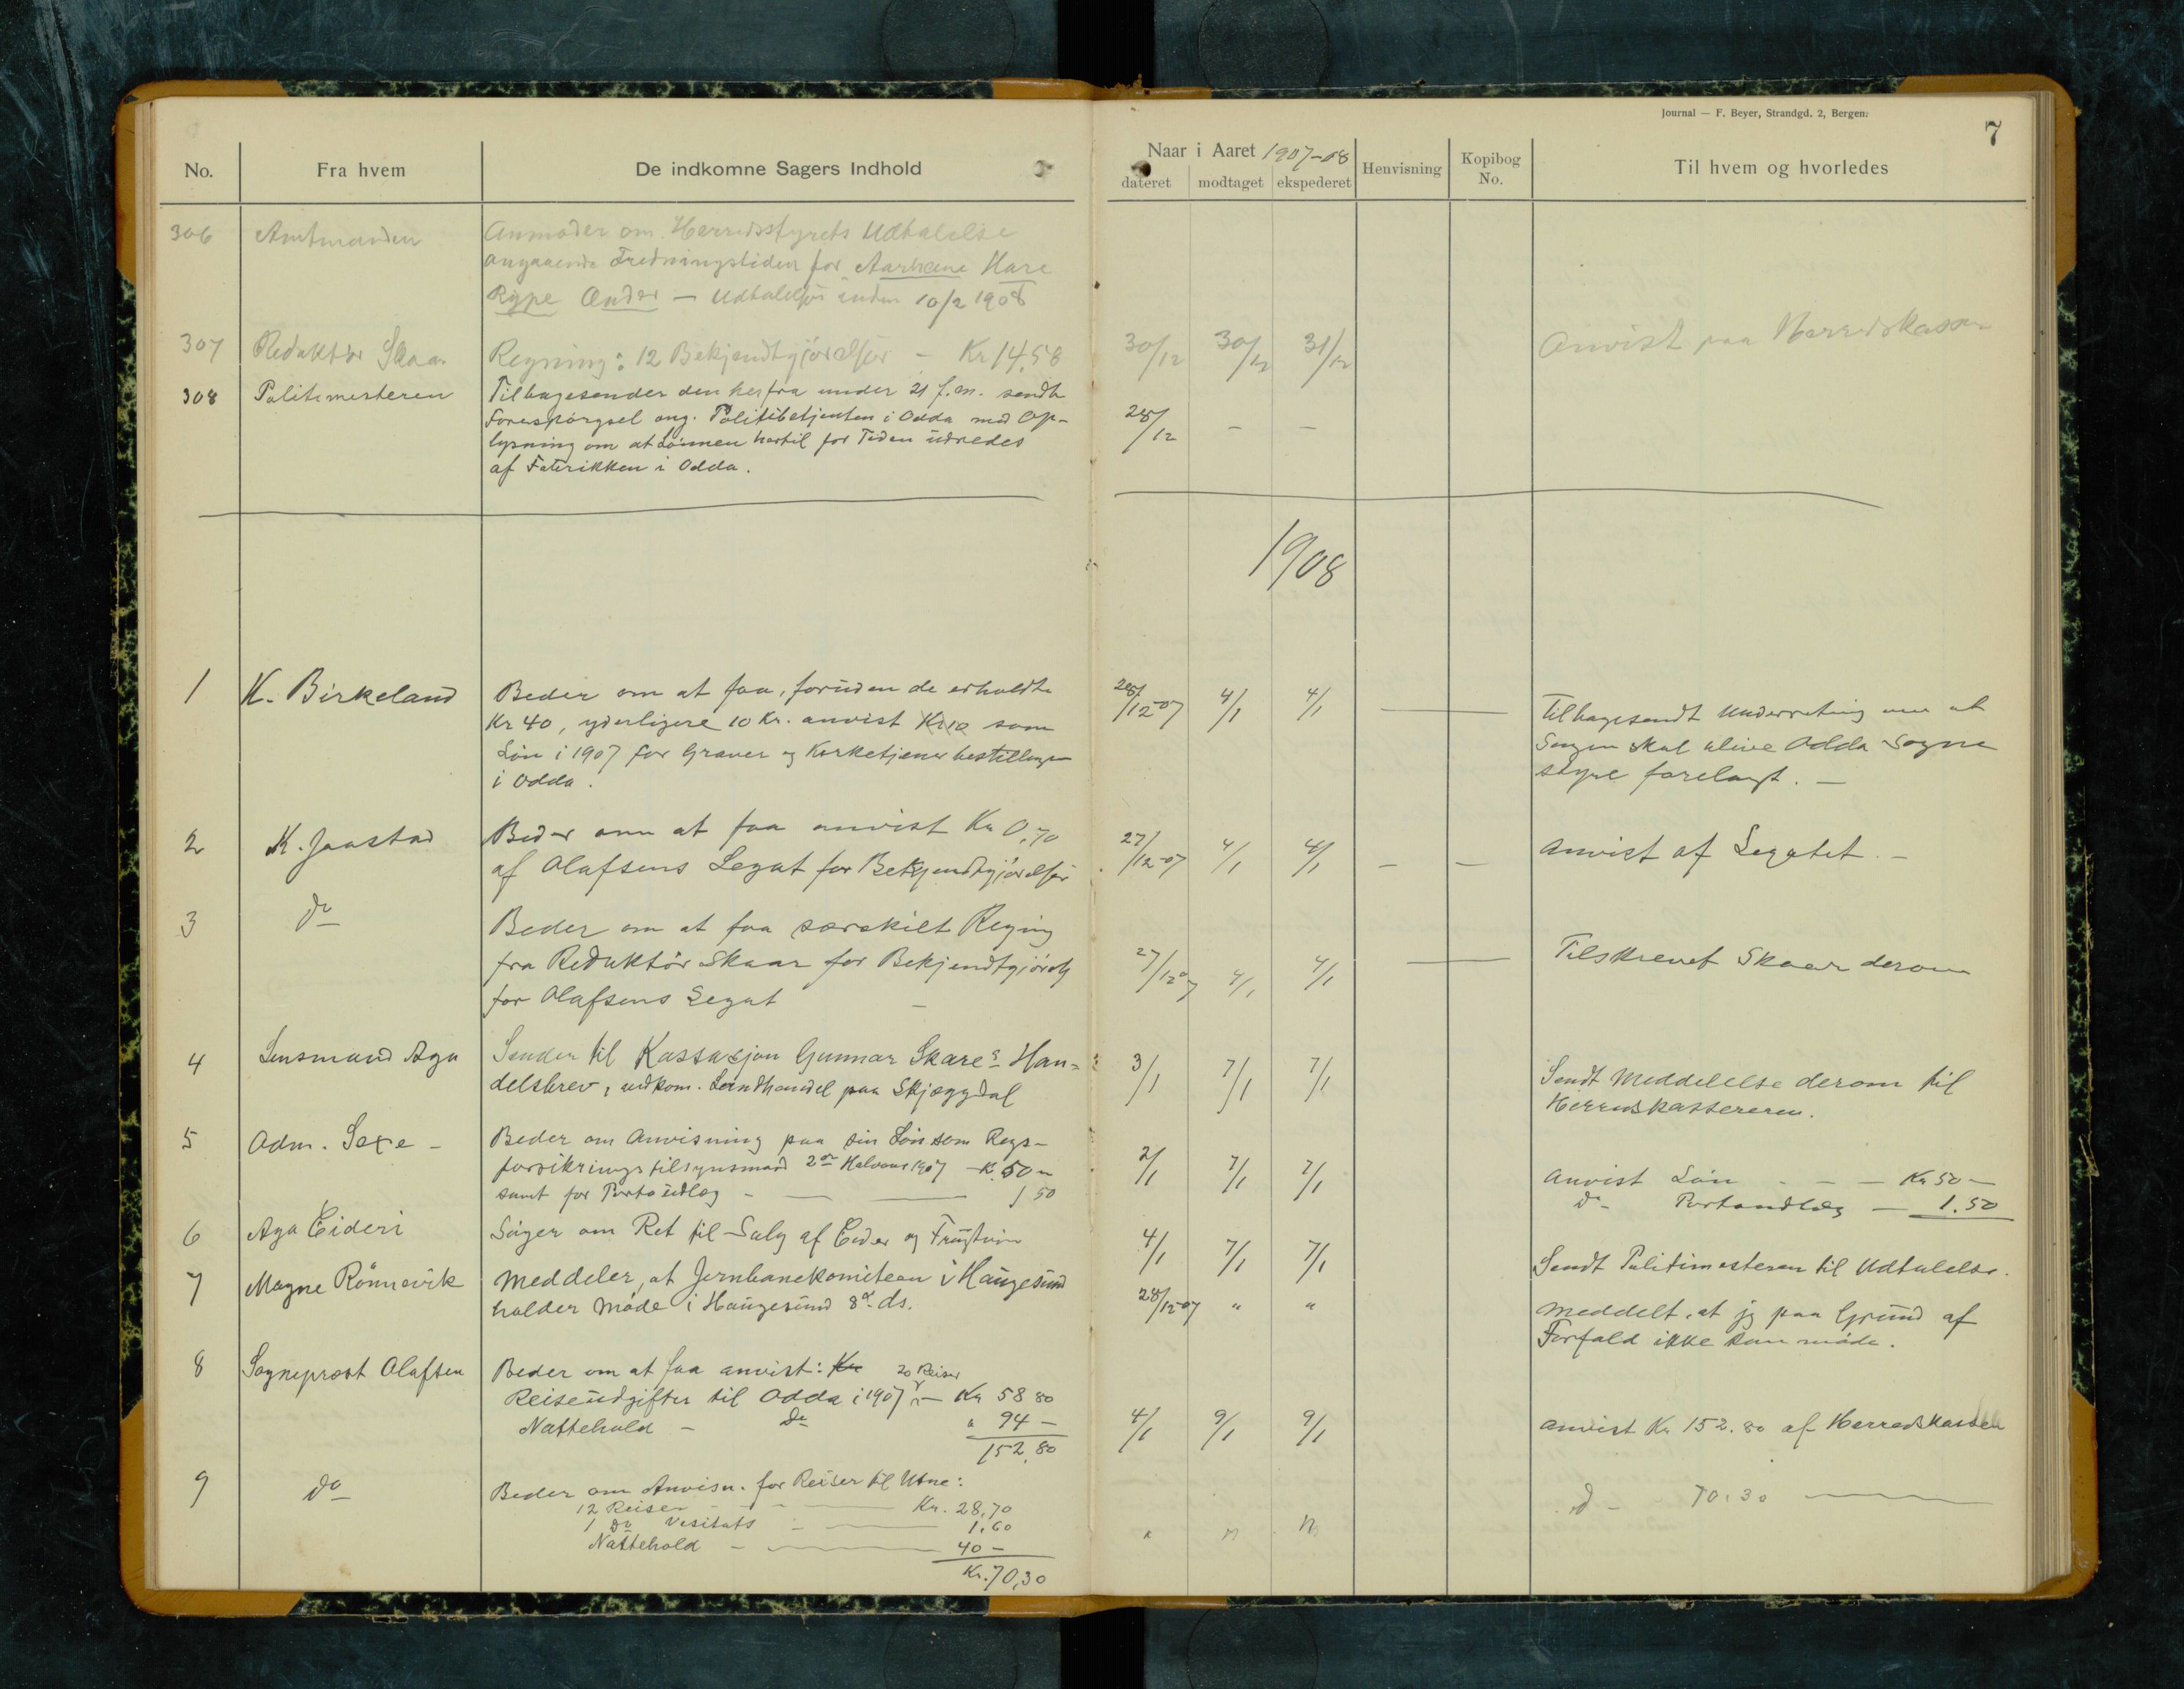 Journal — F. Beyer, Strandgd. 2, Bergen.
7
No.
Fra hvem
De indkomne Sagers Indhold
Naar i Aaret 1907-08
dateret
modtaget
ekspederet
Henvisning
Kopibog No.
Til hvem og hvorledes
306 Amtmanden
Anmoder om Herredsstyrets Udtalelse
angaaende Fredningstiden for Aarhane Hare
Rype Ænder — Udtalelser inden 10/2 1908
307 Redaktör Skaar
Regning: 12 Bekjendtgjörelser - Kr 14,58
30/12 30/12 31/12
Anvist paa Herredskassen
308 Politimesteren
Tilbagesender den herfra under 21 f.m. sendte
Forespörgsel ang. Politibetjenten i Odda med Op-
lysning om at Lönnen hertil for Tiden udredes
af Fabrikken i Odda.
28/12 - -
1908
1 K. Birkeland
Beder om at faa, foruden de erholdte
Kr 40, yderligere 10 Kr. anvist Kr 10 som
Lön i 1907 for Graver og Kirketjener bestillingen
i Odda.
28/12-07 4/1 4/1
Tilbagesendt Underretning om at
Sagen skal blive Odda Sogne
styre forelagt. —
2 K. Jaastad
Beder om at faa anvist Kr 0,70
af Olafsens Legat for Bekjendtgjörelser
27/12-07 4/1 4/1 - -
Anvist af Legatet. -
3 do
Beder om at faa særskilt Regning
fra Redaktör Skaar for Bekjendtgjörels
for Olafsens Legat -
27/12 07 4/1 4/1
Tilskrevet Skaar derom
4 Lensmand Aga
Sender til Kassasjon Gunnar Skares Han-
delsbrev, udkom. Landhandel paa Skjæggdal
3/1 7/1 7/1
Sendt Meddelelse derom til
Herredskassereren.
5 Adm. Sexe -
Beder om Anvisning paa sin Lön som
forsikringstilsynsmand 2det Halvaar 1907 - Kr. 50 -
samt for Porto udlæg - 1 50
2/1 7/1 7/1
Anvist Lön - - - Kr 50 -
do Portoudlæg — 1.50
6 Aga Cideri
Söger om Ret til Salg af Cider og Frugtvin
4/1 7/1 7/1
Sendt Politimesteren til Udtalelse.
7 Magne Rönnevik
Meddeler, at Jernbanekomiteen i Haugesund
holder Möde i Haugesund 8de ds.
28/12-07 " "
Meddelt, at jeg paa Grund af
Forfald ikke kan möde.
8 Sogneprest Olafsen
Beder om at faa anvist: Kr 20 Reiser
Reiseudgifter til Odda i 1907 - Kr 58 80
Nattehold - do " 94 -
152,80
4/1 9/1 9/1
Anvist Kr 152.80 af Herredskassen
9 do
Beder om Anvisn. for Reiser til Utne:
12 Reiser - Kr. 28,70
1 do Visitats - 1,60
Nattehold - 40 -
Kr. 70,30
" " "
d - 70.30